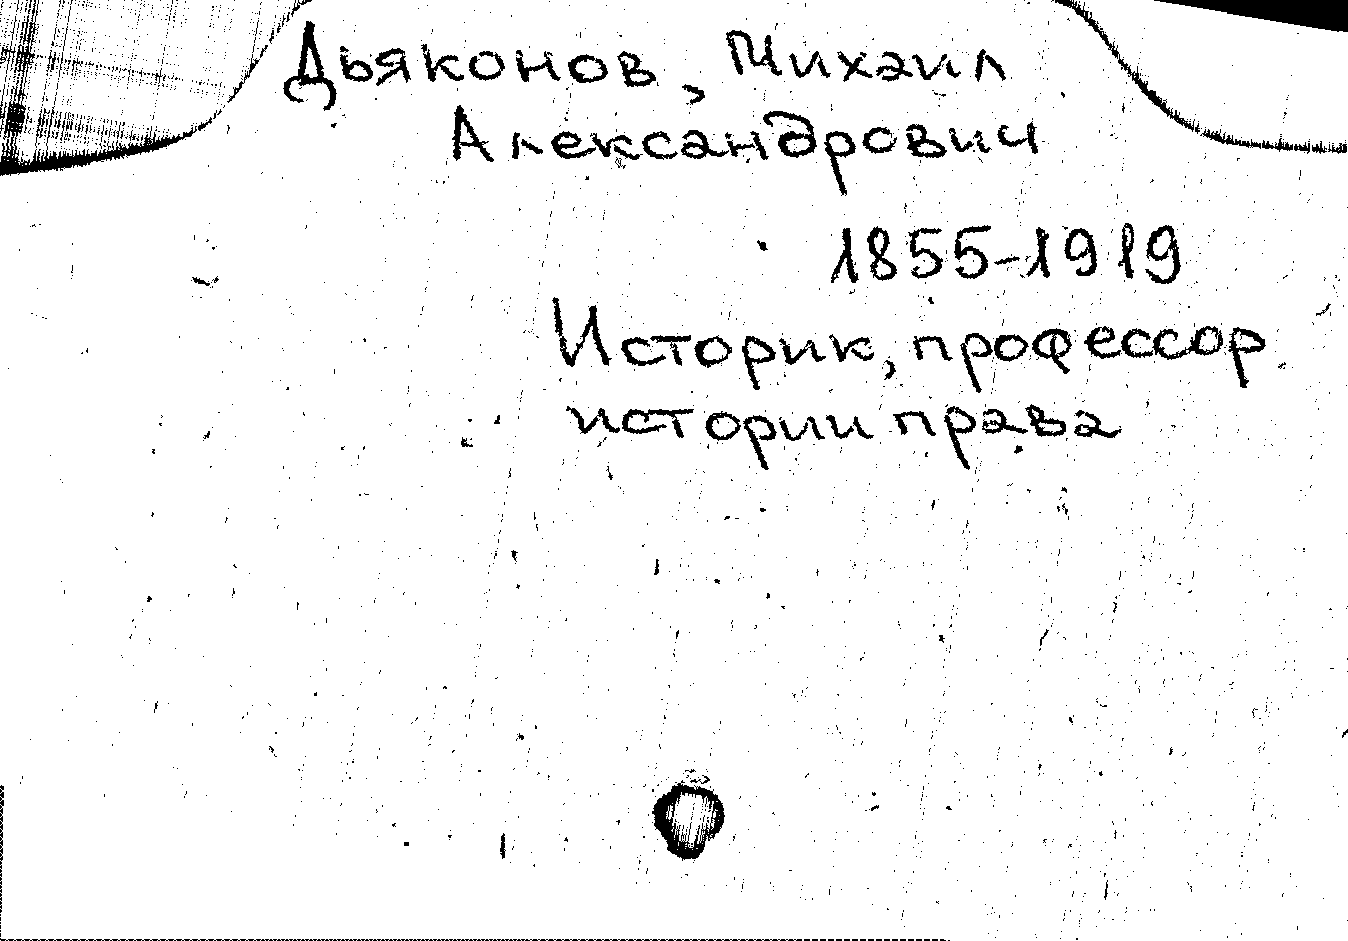 Дьяконов, Михаил
Александрович
1855-1919
Историк, профессор
истории права